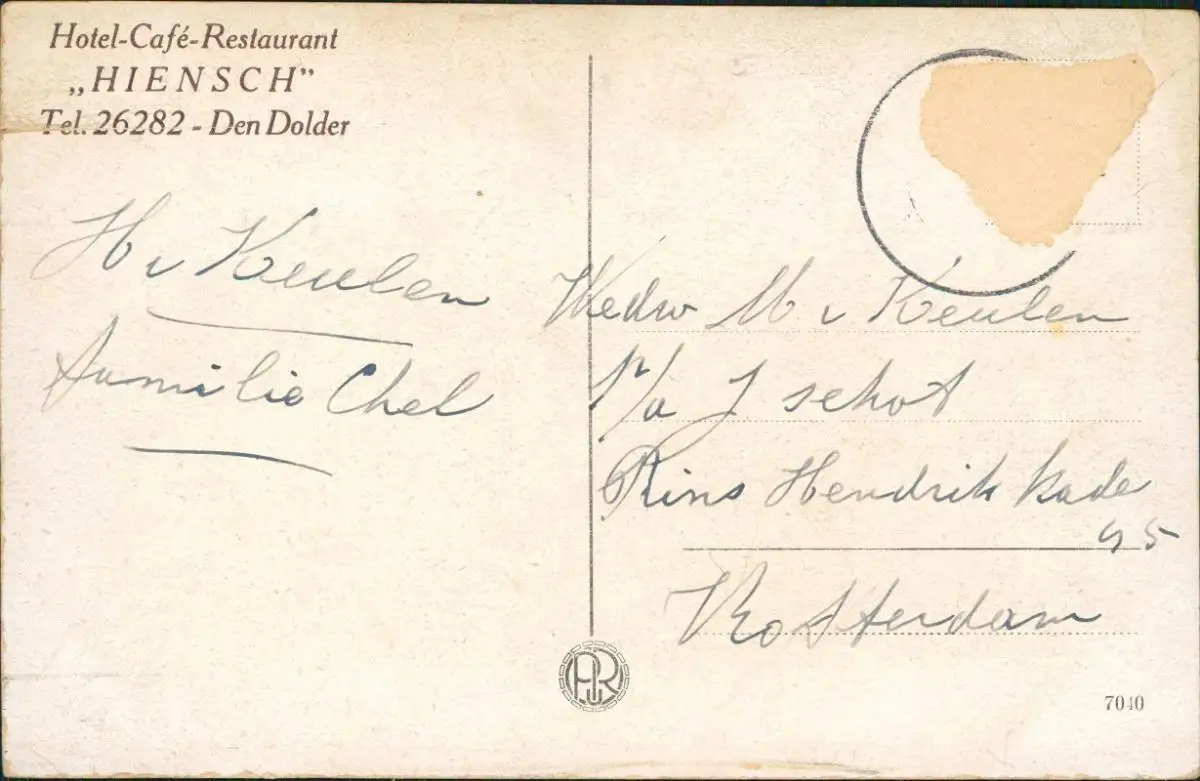 Hotel-Café-Restaurant
„HIENSCH”
Tel. 26282 - Den Dolder
H v Keulen
familie Chel
Wedw M v Keulen
p/a J schot
Prins Hendrik kade
95
Rotterdam
PJR
7040